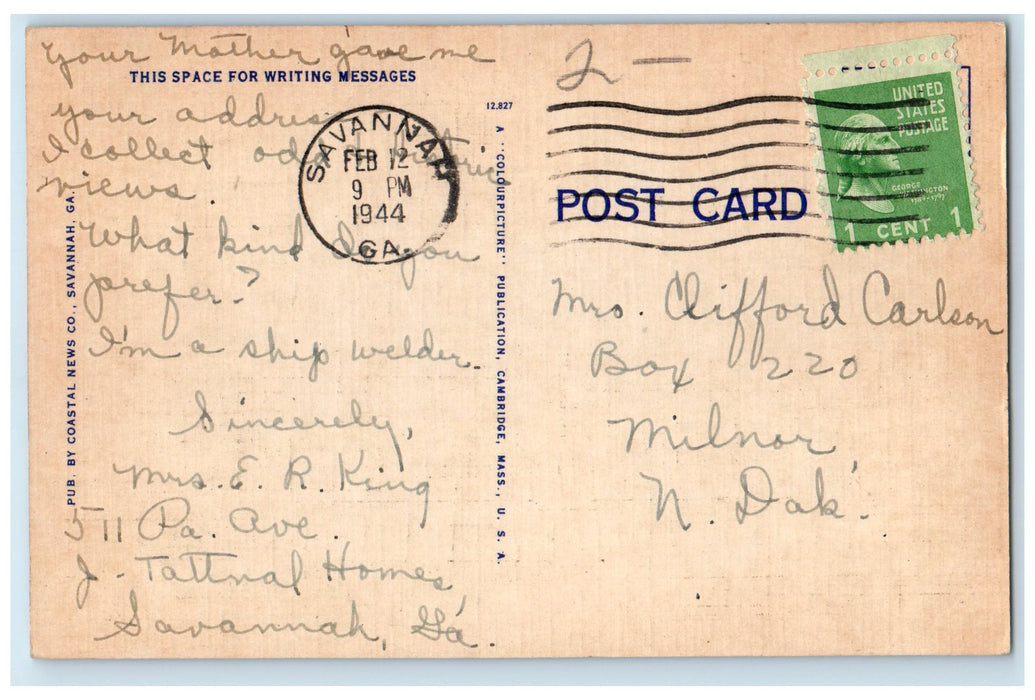 Your Mother gave me
THIS SPACE FOR WRITING MESSAGES
your address
I collect odd
views.
What kind do you
prefer?
I'm a ship welder.
Sincerely,
Mrs. E. R. King
511 Pa. Ave.
J. Tattnal Homes,
Savannah, Ga.
PUB. BY COASTAL NEWS CO., SAVANNAH, GA.
SAVANNAH
FEB 12
9 PM
1944
GA.
12,827
A "COLOURPICTURE" PUBLICATION, CAMBRIDGE, MASS., U. S. A.
2 —
UNITED
STATES
POSTAGE
GEORGE
WASHINGTON
1 CENT 1
POST CARD
Mrs. Clifford Carlson
Box 220
Milnor,
N. Dak.